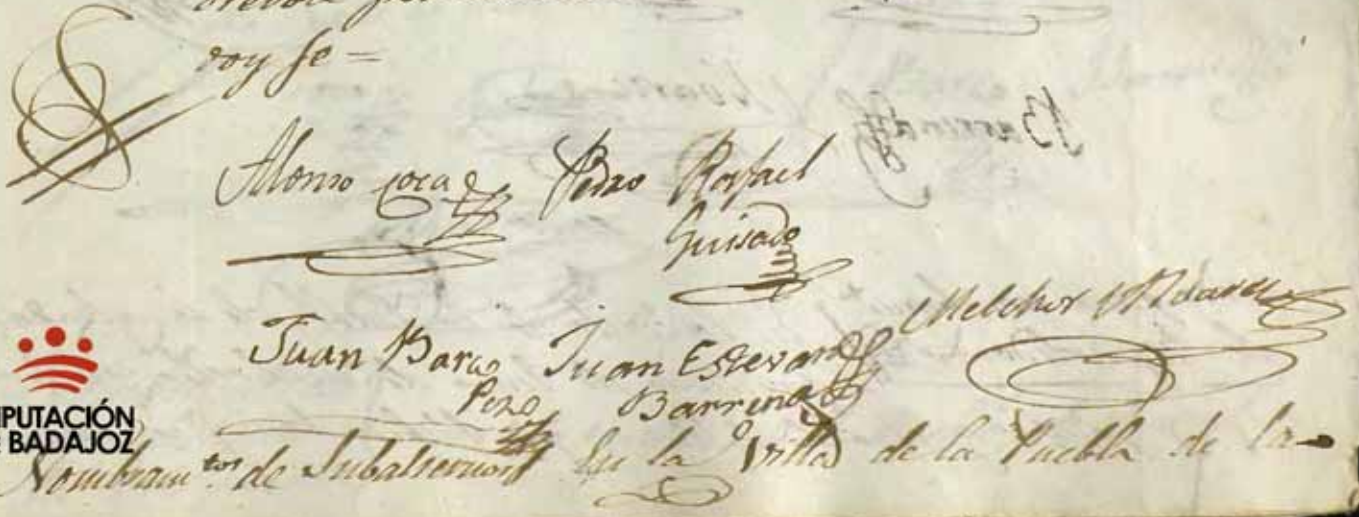 doy fe =
Alonso Coca Pedro Rafael
Guisado
Juan Barco Juan Estevan Melchor
Pezo Barrena
PUTACIÓN
BADAJOZ
Nombram.tos de Subalternos En la Villa de la Puebla de la